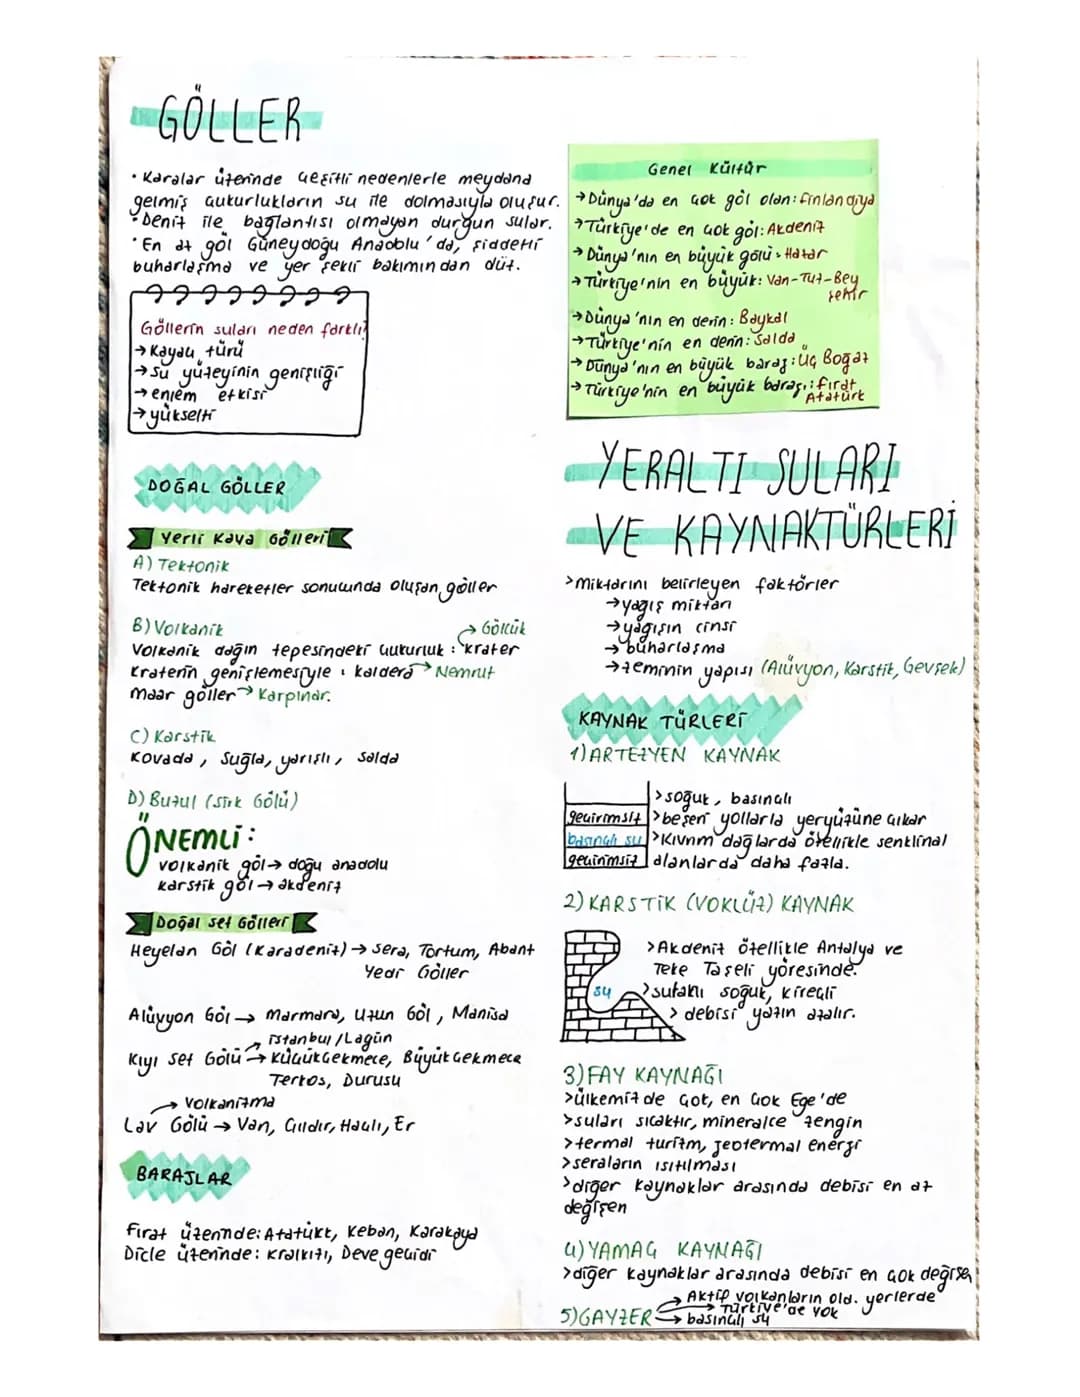 GÖLLER
• Karalar üzerinde çeşitli nedenlerle meydana
gelmiş çukurlukların su ile dolmasıyla oluşur.
• Deniz ile bağlantısı olmayan durgun sular.
• En az göl Güneydoğu Anadolu'da, şiddetli
buharlaşma ve yer şekli bakımından düz.
Göllerin suları neden farklı?
→ Kayaç türü
→ su yüzeyinin genişliği
→ enlem etkisi
→ yükselti
DOĞAL GÖLLER
Yerli Kaya Gölleri
A) Tektonik
Tektonik hareketler sonucunda oluşan göller
B) Volkanik
→ Gölcük
Volkanik dağın tepesindeki çukurluk : krater
Kraterin genişlemesiyle : kaldera → Nemrut
maar göller → Karpınar.
C) Karstik
Kovada, Suğla, yarışlı, Salda
D) Buzul (Sirk Gölü)
ÖNEMLİ:
volkanik göl → doğu anadolu
karstik göl → akdeniz
Doğal set Gölleri
Heyelan Göl (Karadeniz) → Sera, Tortum, Abant
Yedi Göller
Alüvyon Göl → Marmara, Uzun Göl, Manisa
→ istanbul / Lagün
Kıyı set Gölü → KüçükÇekmece, BüyükÇekmece
Terkos, Durusu
→ Volkanizma
Lav Gölü → Van, Çıldır, Haçlı, Er
BARAJLAR
Fırat üzerinde: Atatükt, Keban, Karakaya
Dicle üzerinde: Kralkızı, Devegeçidi
Genel Kültür
→ Dünya'da en çok göl olan: Finlandiya
→ Türkiye'de en çok göl: Akdeniz
→ Dünya'nın en büyük gölü: Hazar
→ Türkiye'nin en büyük: Van-Tuz-Bey
şehir
→ Dünya'nın en derin: Baykal
→ Türkiye'nin en derin: Salda
→ Dünya'nın en büyük baraj: Üç Boğaz
→ Türkiye'nin en büyük barajı: fırat
Atatürk
YERALTI SULARI
VE KAYNAKTÜRLERİ
> Miktarını belirleyen faktörler
→ yağış miktarı
→ yağışın cinsi
→ buharlaşma
→ zeminin yapısı (Alüvyon, Karstik, Gevşek)
KAYNAK TÜRLERİ
1) ARTEZYEN KAYNAK
> soğuk, basınçlı
geçirimsiz
> beşeri yollarla yeryüzüne çıkar
basınçlı su
> Kıvrım dağlarda özellikle senklinal
geçirimsiz
alanlarda daha fazla.
2) KARSTİK (VOKLÜZ) KAYNAK
> Akdeniz özellikle Antalya ve
Teke Taşeli yöresinde.
su
> suları soğuk, kireçli
> debisi yazın azalır.
3) FAY KAYNAĞI
> ülkemizde çok, en çok Ege'de
> suları sıcaktır, mineralce zengin
> termal turizm, jeotermal enerji
> seraların ısıtılması
> diğer kaynaklar arasında debisi en az
değişen
4) YAMAÇ KAYNAĞI
> diğer kaynaklar arasında debisi en çok değişen
→ Aktif volkanların old. yerlerde
→ Türkiye'de yok
5) GAYZER → basınçlı su